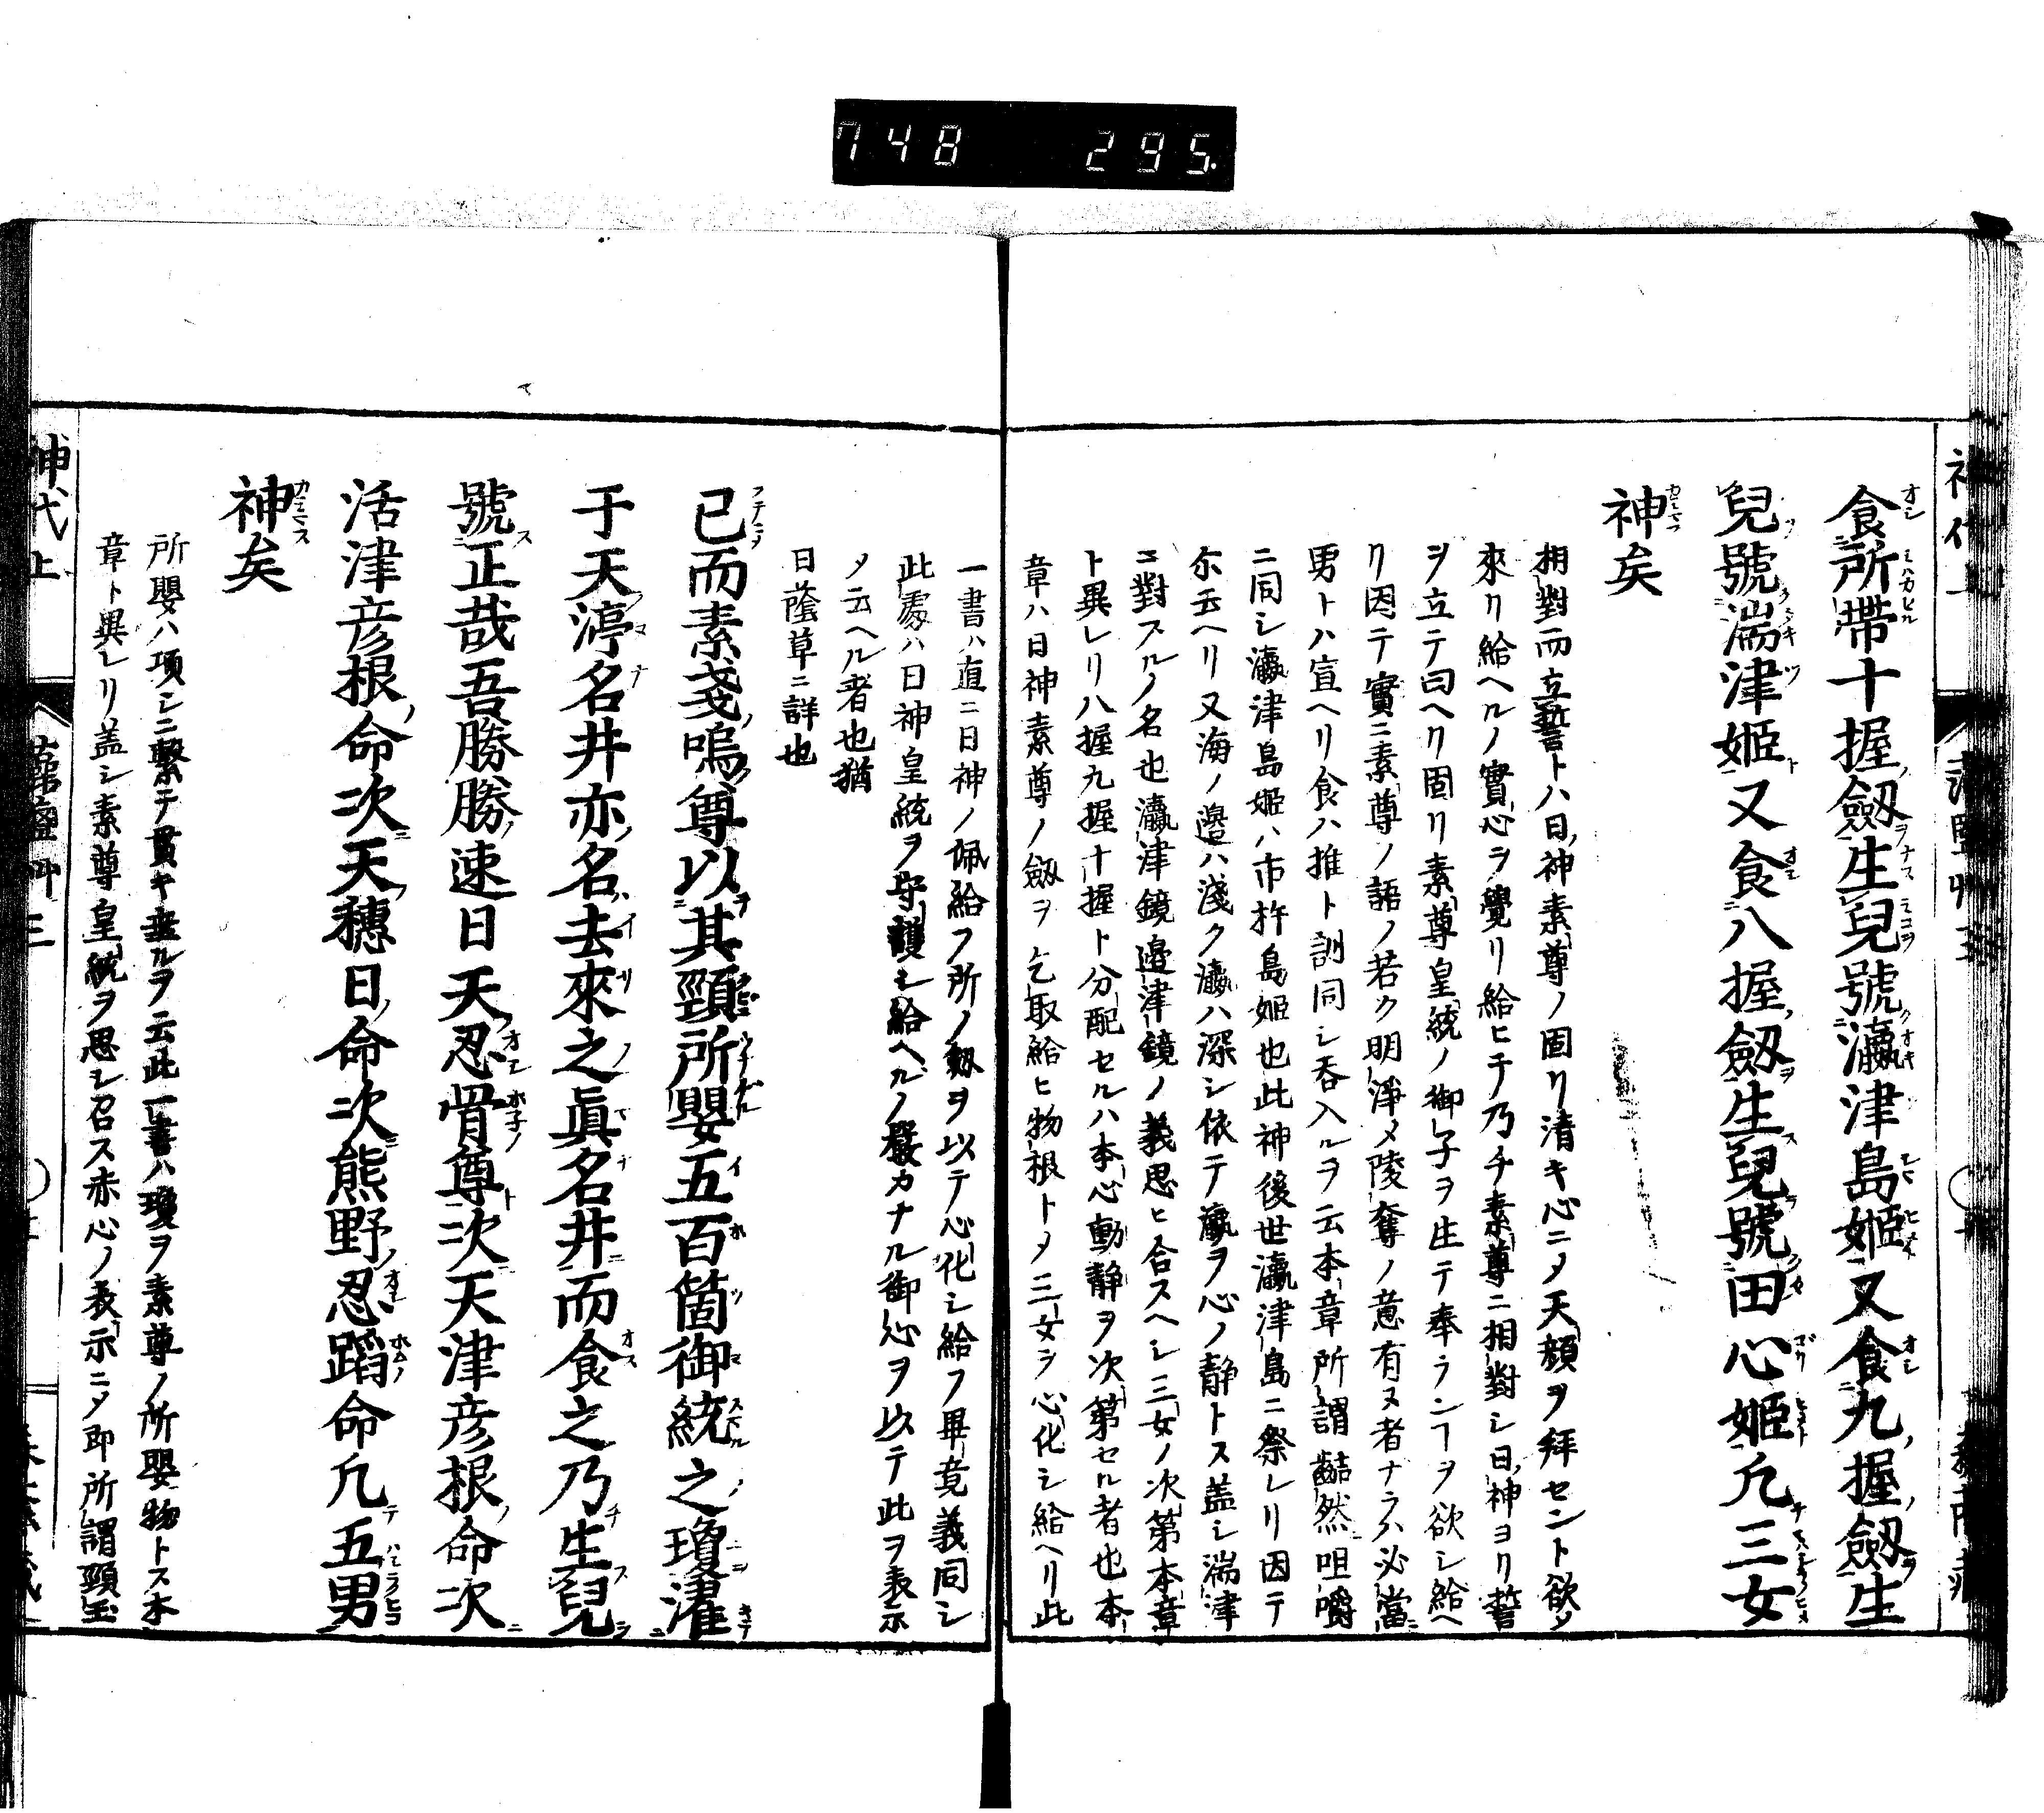 748 295.
食所帶十握劔生兒號瀛津島姫又食九握劔生
兒號湍津姫又食八握劔生兒號田心姫凡三女
神矣
相對而立誓トハ日神素尊ノ固リ清キ心ニメ天顏ヲ拜セント欲メ
來リ給ヘルノ實心ヲ覺リ給ヒチ乃チ素尊ニ相對シ日神ヨリ誓
ヲ立テ曰ヘリ固リ素尊皇統ノ御子ヲ生テ奉ランヿヲ欲シ給ヘ
リ因テ實ニ素尊ノ語ノ若ク明淨メ陵奪ノ意有ヌ者ナラハ必當ニ
男トハ宣ヘリ食ハ推ト訓同シ呑入ルヲ云本章所謂齧然咀嚼
ニ同シ瀛津島姫ハ市杵島姫也此神後世瀛津島ニ祭レリ因テ
尓云ヘリ又海ノ邊ハ淺ク瀛ハ深シ依テ瀛ヲ心ノ靜トス盖シ湍津
ニ對スルノ名也瀛津鏡邉津鏡ノ義思ヒ合スヘシ三女ノ次第本章
ト異レリ八握九握十握ト分配セルハ本心動靜ヲ次第セル者也本
章ハ日神素尊ノ劔ヲ乞取給ヒ物根トメ三女ヲ心化シ給ヘリ此
一書ハ直ニ日神ノ佩給フ所ノ劔ヲ以テ心化シ給フ畢竟義同シ
此處ハ日神皇統ヲ守護シ給ヘルノ嚴カナル御心ヲ以テ此ヲ表示
メ云ヘル者也猶
日蔭草ニ詳也
已而素戔嗚尊以其頸所嬰五百箇御統之瓊濯
于天渟名井亦名去來之眞名井而食之乃生兒
號正哉吾勝勝速日天忍骨尊次天津彦根命次
活津彦根命次天穗日命次熊野忍蹈命凡五男
神矣
所嬰ハ項シニ繋テ貫キ埀ルヲ云此一書ハ瓊ヲ素尊ノ所嬰物トス本
章ト異レリ盖シ素尊皇統ヲ思シ召ス赤心ノ表示ニメ即所謂頸玉
神代上
三